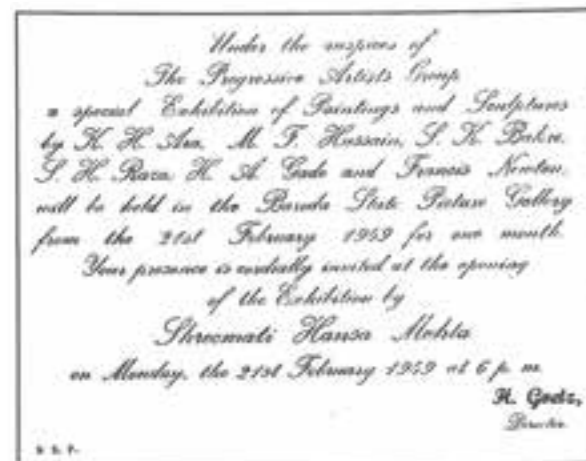 Under the auspices of
The Progressive Artists Group
a special Exhibition of Paintings and Sculptures
by K. H. Ara, M. F. Hussain, S. K. Bakre,
S. H. Raza, H. A. Gade and Francis Newton,
will be held in the Baroda State Picture Gallery
from the 21st February 1959 for one month.
Your presence is cordially invited at the opening
of the Exhibition by
Shreemati Hansa Mehta
on Monday, the 21st February 1959 at 6 p. m.
H. Goetz,
Director